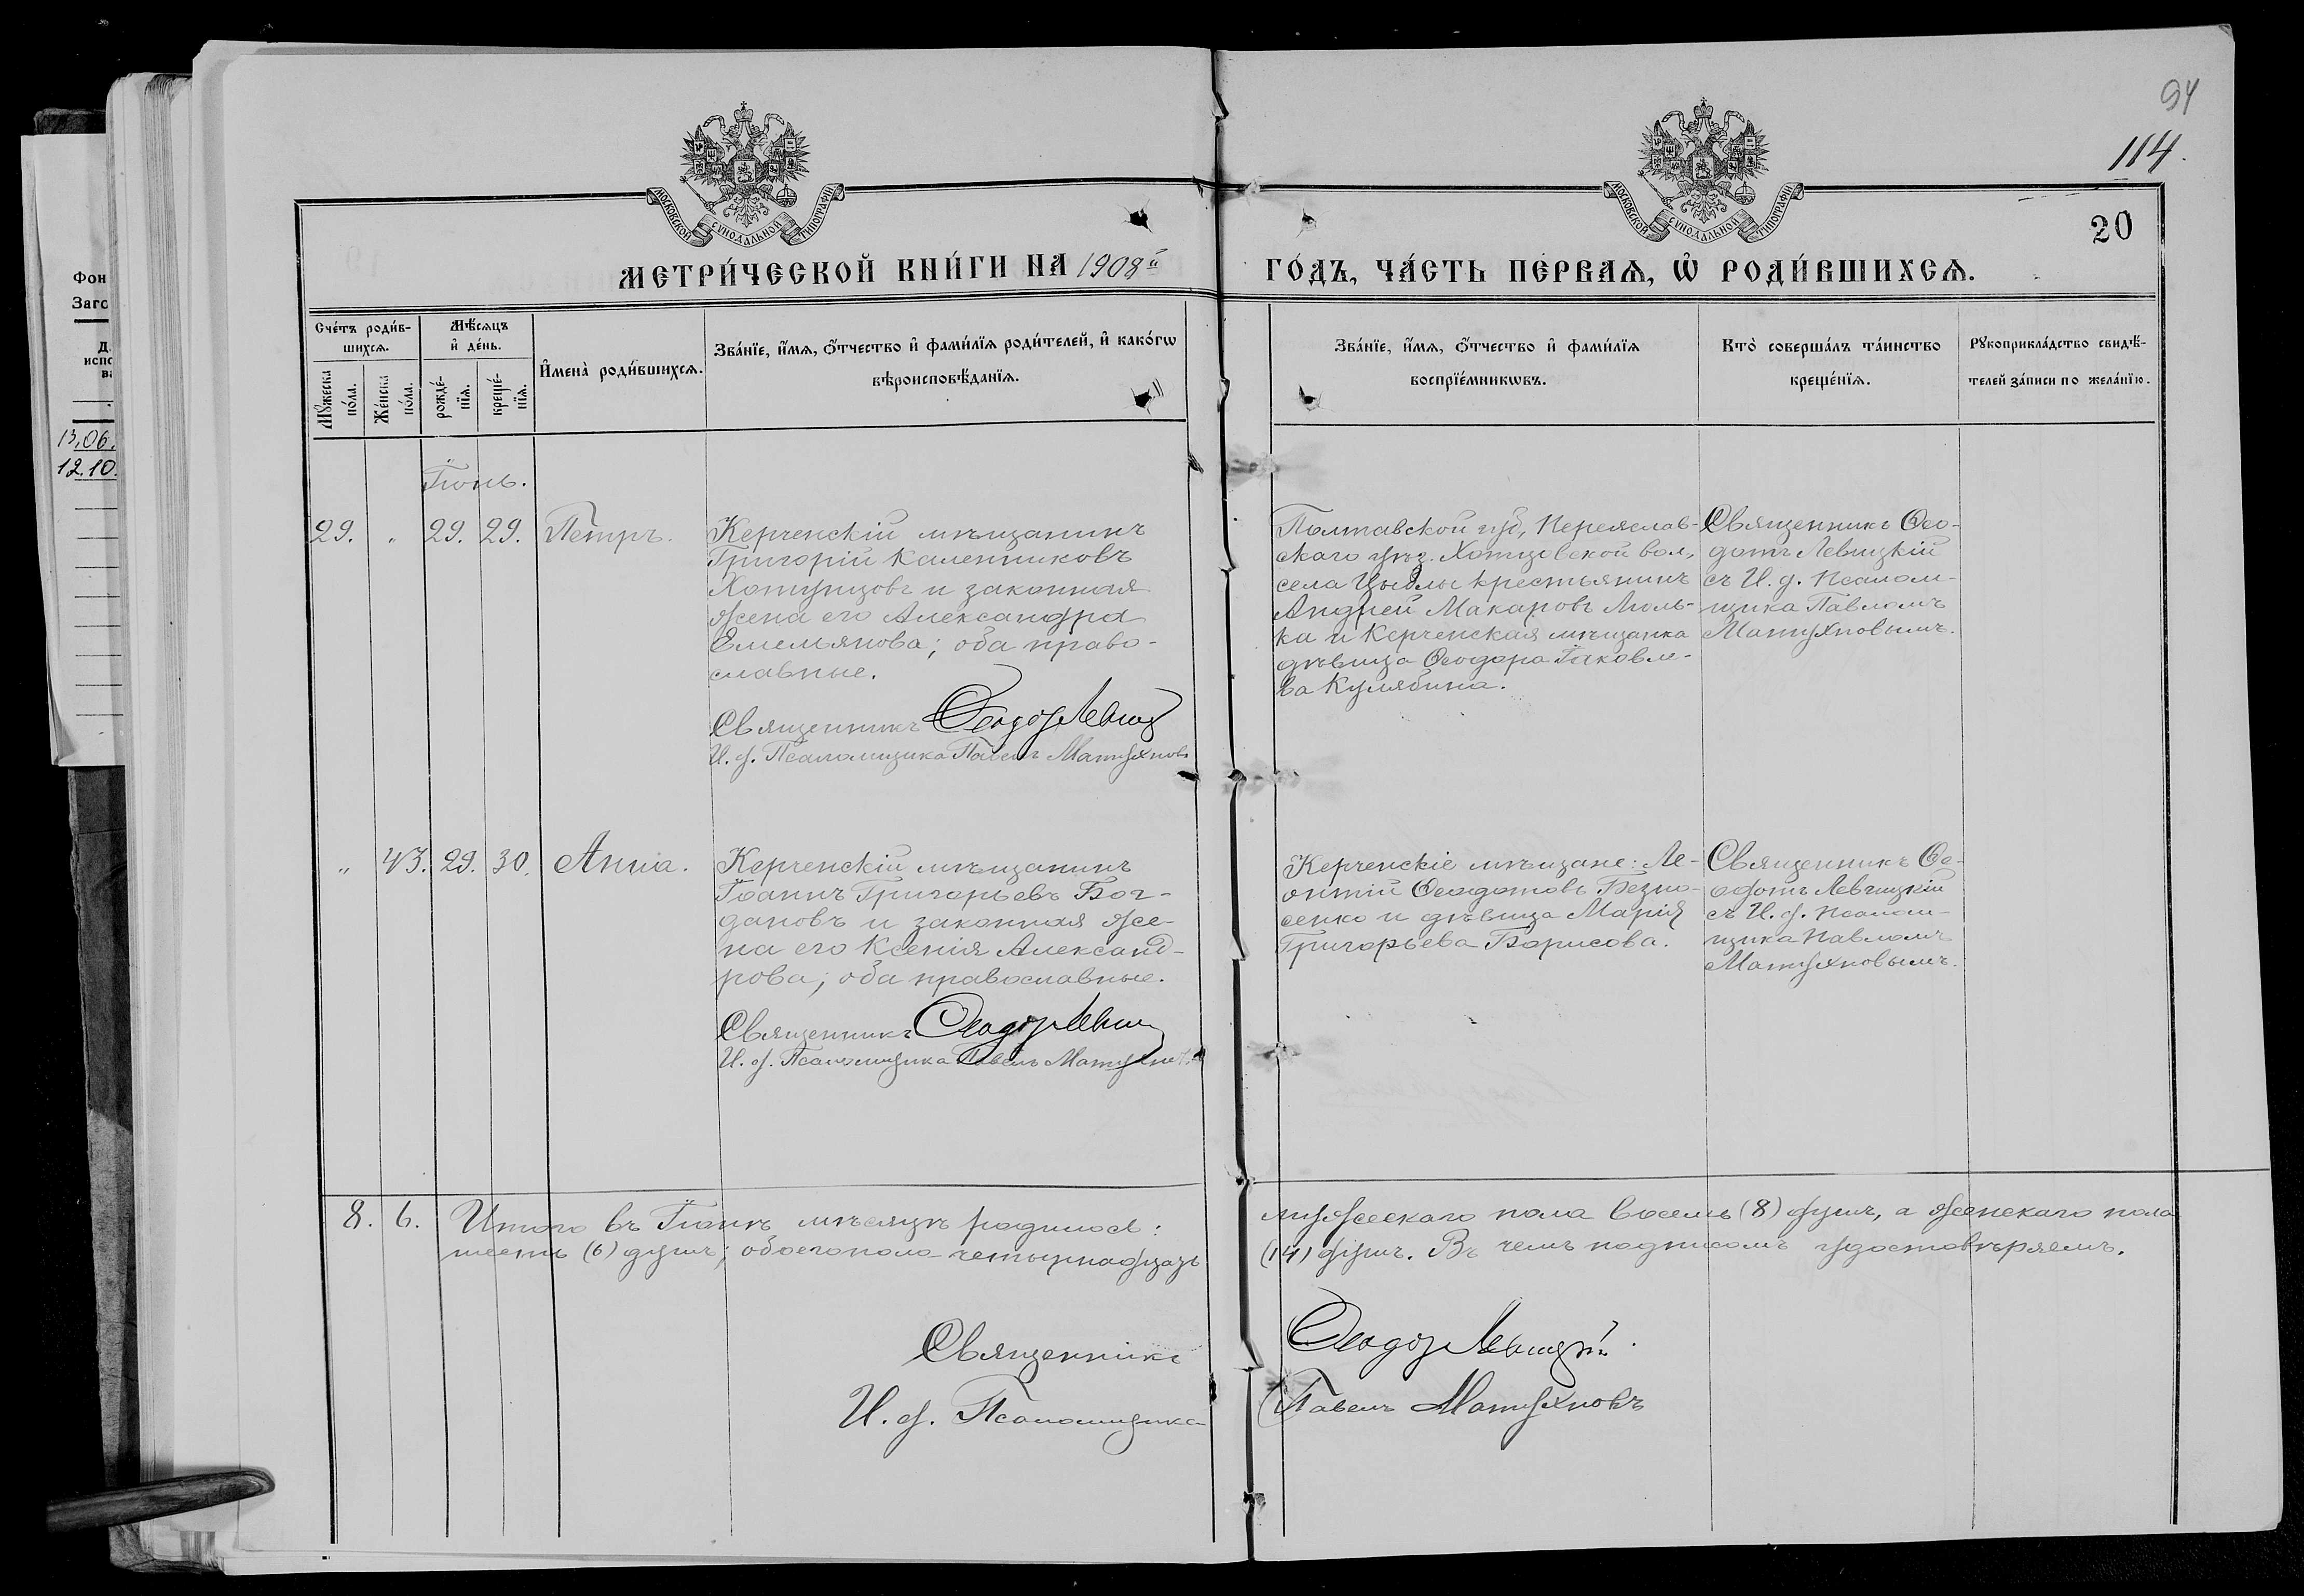 94
114.
20
Фон
Заго
Д
испо
ва
13.06.
12.10.
МОСКОВСКОЙ СѴНОДАЛЬНОЙ ТИПОГРАФІИ
МОСКОВСКОЙ СѴНОДАЛЬНОЙ ТИПОГРАФІИ
МЕТРИ́ЧЕСКОЙ КНИ́ГИ НА 1908й ГО́ДЪ, ЧА́СТЬ ПЕ́РВАѦ, Ѡ҆ РОДИ́ВШИХСѦ.
Сче́тъ роди́в-
шихсѧ.
Мꙋ́жеска
по́ла.
Же́нска
по́ла.
Мѣ́сѧцъ
и҆ де́нь.
рожде́-
нїѧ.
креще́-
нїѧ.
И҆мена̀ роди́вшихсѧ.
Зва́нїе, и҆́мѧ, ѻ҆́тчество и҆ фами́лїѧ роди́телей, и҆ како́гѡ
вѣроисповѣ́данїѧ.
Зва́нїе, и҆́мѧ, ѻ҆́тчество и҆ фами́лїѧ
воспрїе́мникѡвъ.
Кто̀ соверша́лъ та́инство
креще́нїѧ.
Рꙋкоприкла́дство свидѣ́-
телей за́писи по жела́нїю.
Іюнь.
29. „ 29. 29. Петръ.
Керченскій мѣщанинъ
Григорій Каленниковъ
Хотунцовъ и законная
жена его Александра
Емельянова; оба право-
славные.
Священникъ Ѳеодотъ Левиц
И. д. Псаломщика Павелъ Матухновъ
Полтавской губ, Переяслав-
скаго уѣз. Хоцковской вол,
села Цыблы крестьянинъ
Андрей Макаровъ Люль-
ка и Керченская мѣщанка
дѣвица Ѳеодора Іаковле-
ва Кулябина.
Священникъ Ѳео-
дотъ Левицкій
съ И. д. Псалом-
щика Павломъ
Матухновымъ.
„ 43. 29. 30. Анна.
Керченскій мѣщанинъ
Іоаннъ Григорьевъ Бог-
дановъ и законная же-
на его Ксенія Александ-
рова; оба православные.
Священникъ Ѳеодотъ Левиц
И. д. Псаломщика Павелъ Матухновъ
Керченскіе мѣщане: Ле-
онтій Ѳеодотовъ Безно-
сенко и дѣвица Марія
Григорьева Борисова.
Священникъ Ѳе-
одотъ Левицкій
съ И. д. Псалом-
щика Павломъ
Матухновымъ.
8. 6. Итого въ Іюнѣ мѣсяцѣ родилося: мужескаго пола восемь (8) душъ, а женскаго пола
шесть (6) душъ; обоего пола четырнадцать (14) душъ. Въ чемъ подписомъ удостовѣряемъ.
Священникъ Ѳеодотъ Левицкій.
И. д. Псаломщика Павелъ Матухновъ